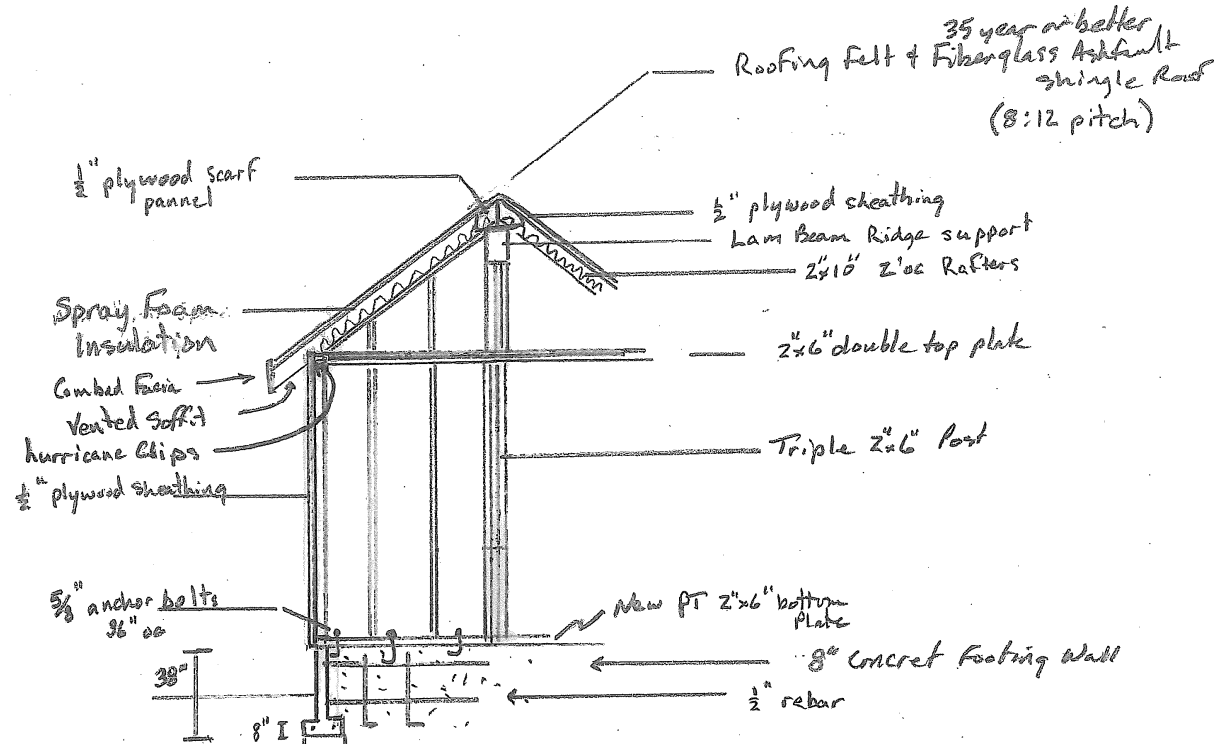 35 year or better
Roofing Felt & Fiberglass Ashfault
shingle Roof
(8:12 pitch)
½" plywood scarf
pannel
½" plywood sheathing
Lam Beam Ridge support
2"x10" 2'oc Rafters
Spray Foam
Insulation
2"x6" double top plate
Combad Facia
Vented Soffit
hurricane Clips
Triple 2"x6" Post
½" plywood sheathing
5/8" anchor bolts
96" oc
New PT 2"x6" bottom
Plate
38"
8" Concret Footing Wall
½" rebar
8" I